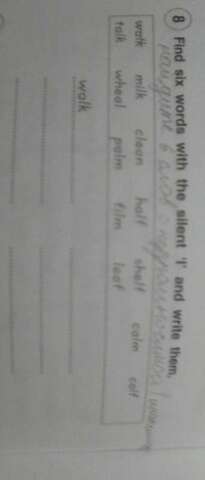 8 Find six words with the silent 'l' and write them.
найдите 6 слов с
walk milk clean half shelf calm calf
talk wheel palm film leaf
walk